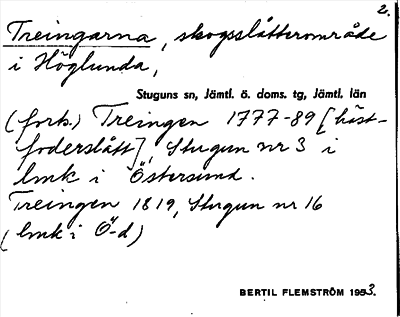 2.
Treingarna, skogsslåtterområde
i Höglunda,
Stuguns sn, Jämtl. ö. doms. tg, Jämtl. län
(fork.) Treingen 1777-89 [häst-
foderslått], Stugun nr 3 i
lmk i Östersund.
Treingen 1819, Stugun nr 16
(lmk i Ö-d)
BERTIL FLEMSTRÖM 1953.